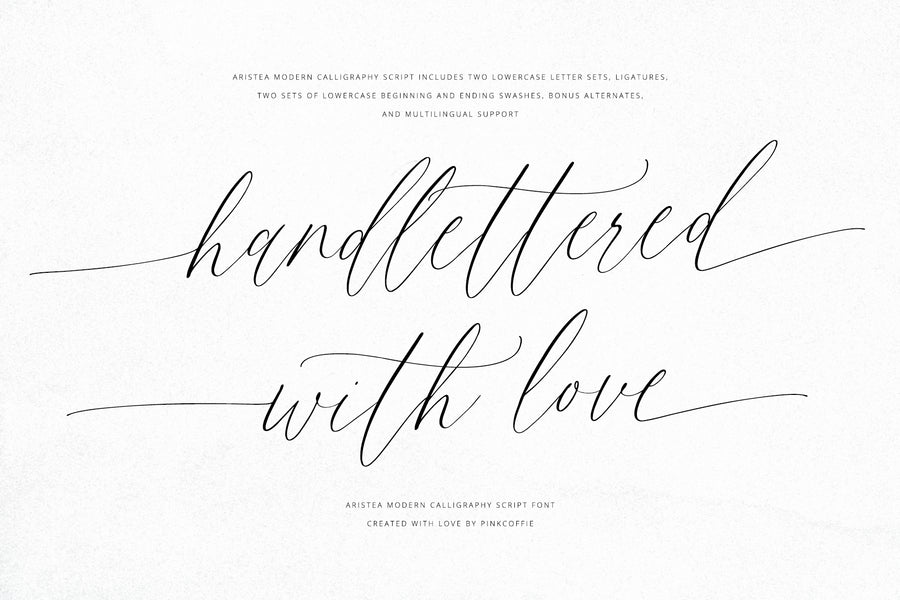 ARISTEA MODERN CALLIGRAPHY SCRIPT INCLUDES TWO LOWERCASE LETTER SETS, LIGATURES,
TWO SETS OF LOWERCASE BEGINNING AND ENDING SWASHES, BONUS ALTERNATES,
AND MULTILINGUAL SUPPORT
handlettered
with love
ARISTEA MODERN CALLIGRAPHY SCRIPT FONT
CREATED WITH LOVE BY PINKCOFFIE